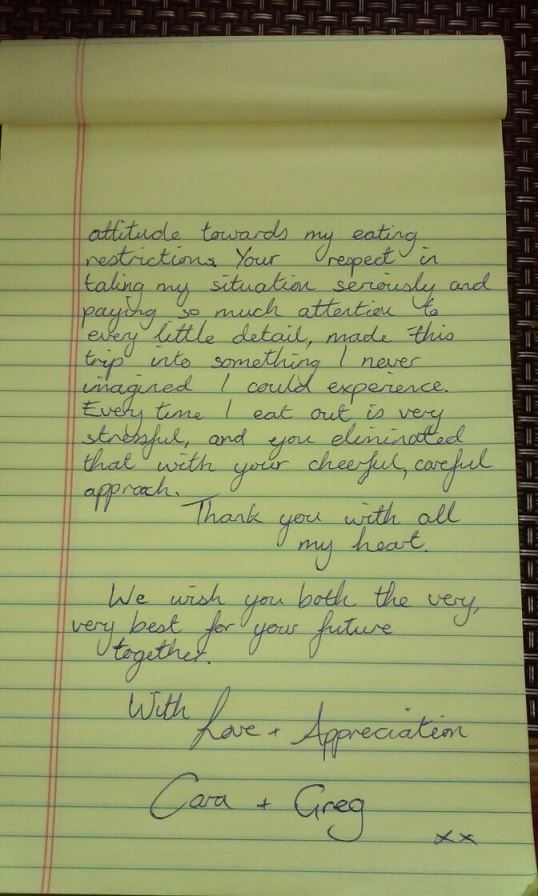 attitude towards my eating
restrictions. Your respect in
taking my situation seriously and
paying so much attention to
every little detail, made this
trip into something I never
imagined I could experience.
Every time I eat out is very
stressful, and you eliminated
that with your cheerful, careful
approach.
Thank you with all
my heart.
We wish you both the very,
very best for your future
together.
With Love + Appreciation
Cara + Greg
xx